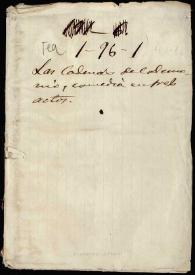 Tea 1-96-1
Las Cadenas del demo
nio, comedia en tres
actos.